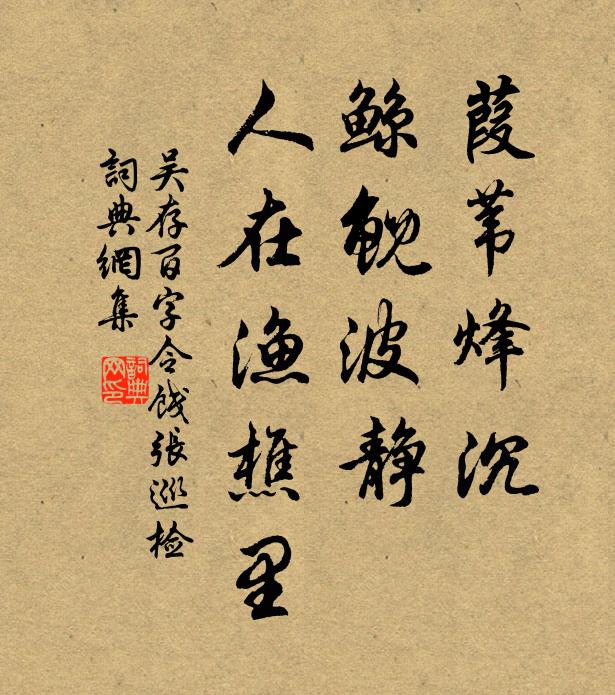 葭苇烽沉
鲸鲵波静
人在渔樵里
吴存百字令饯張巡检
詞典網集
詞典網印